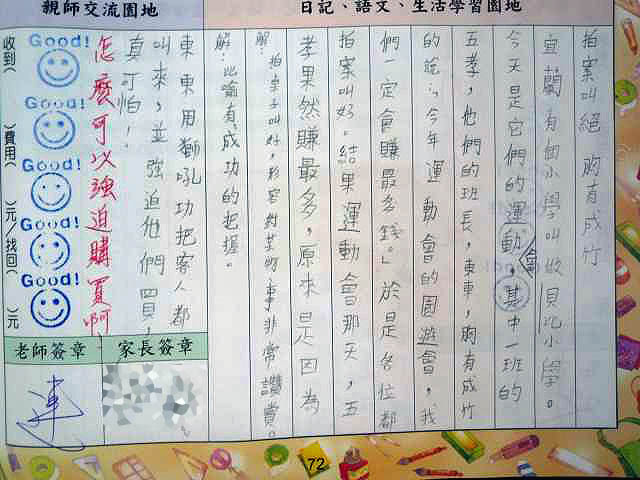 親師交流園地
日記、語文、生活學習園地
拍案叫絕 胸有成竹
宜蘭有個小學叫做貝比小學。
今天是它們的運動會,其中一班的
五孝,他們的班長,東東,胸有成竹
的說:「今年運動會的園遊會,我
們一定會賺最多錢。」於是各位都
拍案叫好。結果運動會那天,五
孝果然賺最多,原來是因為
解:拍桌子叫好,形容對某些事非常讚賞。
解:比喻有成功的把握。
東東用獅吼功把客人都
叫來,並強迫他們買,
真可怕!
怎麼可以強迫購買啊
Good!
Good!
Good!
Good!
Good!
收到(
)費用(
)元/找回(
)元
老師簽章
家長簽章
連
72